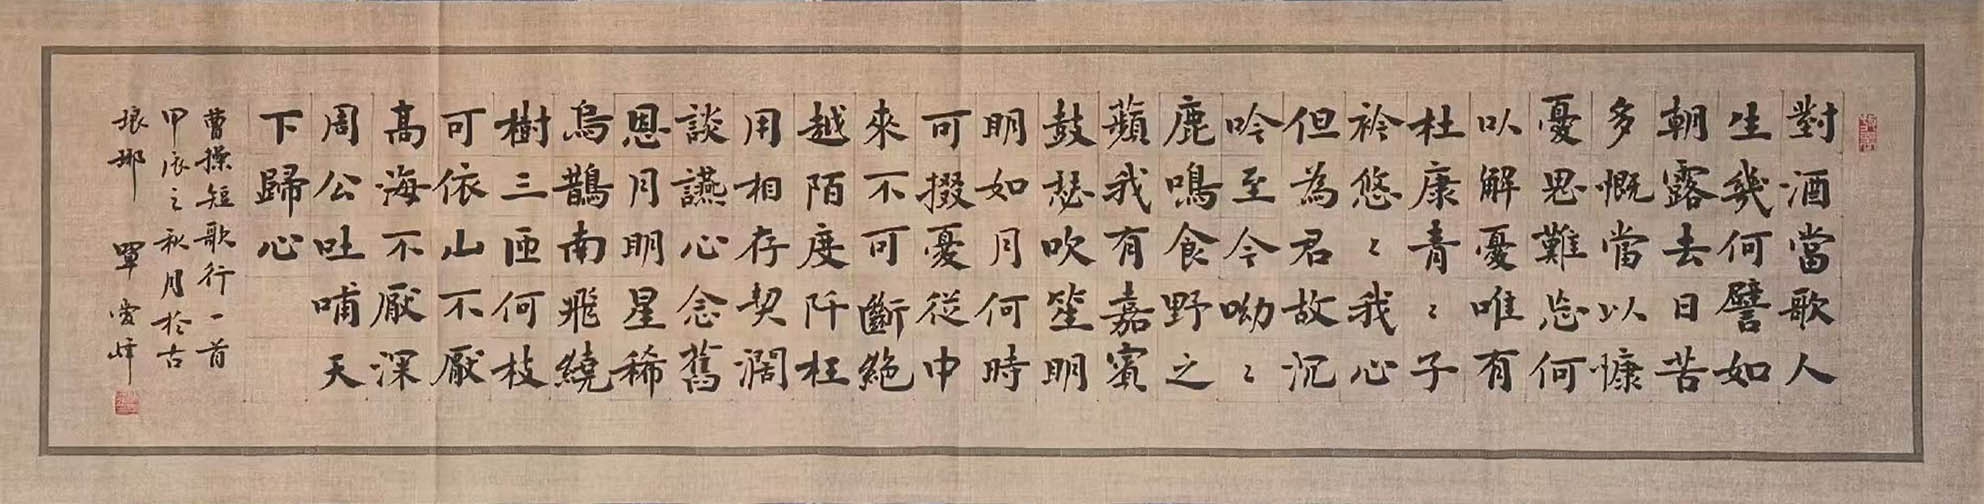 對酒當歌人
生幾何譬如
朝露去日苦
多慨當以慷
憂思難忘何
以解憂唯有
杜康青〻子
衿悠〻我心
但為君故沉
吟至今呦〻
鹿鳴食野之
蘋我有嘉賓
鼓瑟吹笙明
明如月何時
可掇憂從中
來不可斷絕
越陌度阡枉
用相存契闊
談讌心念舊
恩月明星稀
烏鵲南飛繞
樹三匝何枝
可依山不厭
高海不厭深
周公吐哺天
下歸心
曹操短歌行一首
甲辰之秋月於古
琅琊 單愛峰